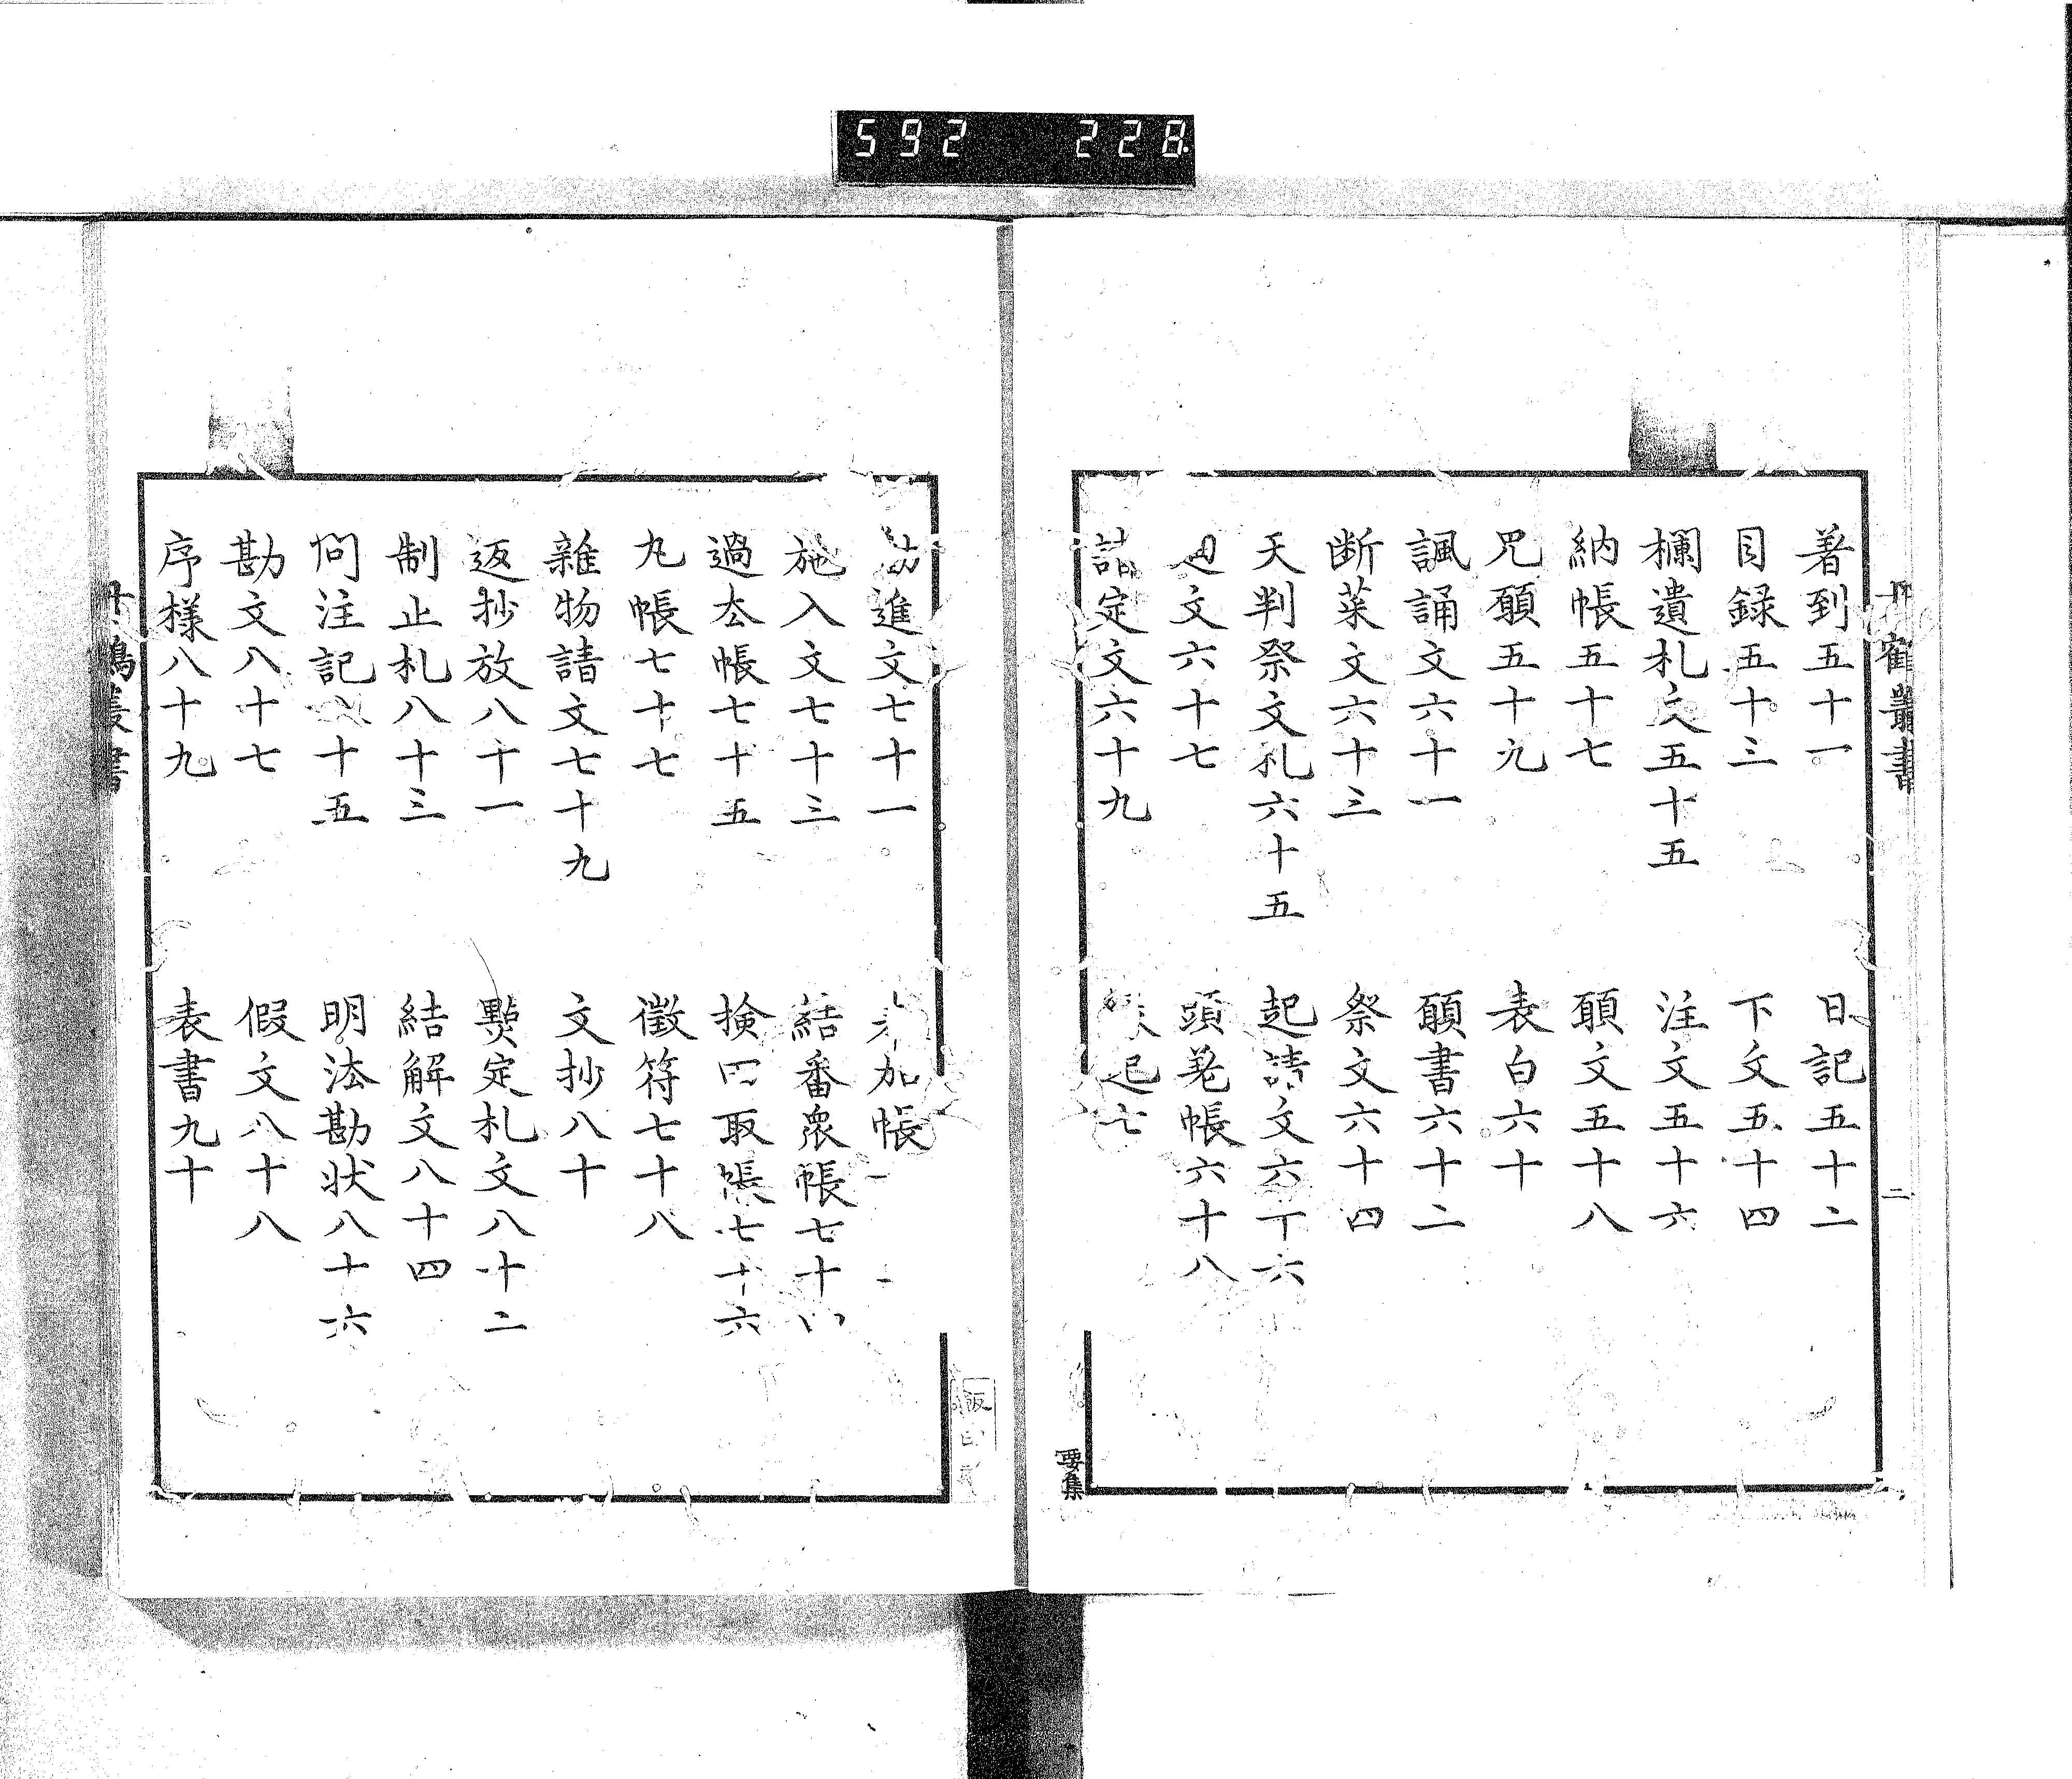 592 228
鶴叢書
二
著到五十一
日記五十二
目録五十三
下文五十四
欄遺札文五十五
注文五十六
納帳五十七
願文五十八
咒願五十九
表白六十
諷誦文六十一
願書六十二
断菜文六十三
祭文六十四
天判祭文札六十五
起請文六十六
文六十七
頭巻帳六十八
定文六十九
起七
要集
進文七十一
加帳
施入文七十三
結番衆帳七十
過去帳七十五
検田取帳七十六
丸帳七十七
徴符七十八
雜物請文七十九
文抄八十
返抄放八十一
點定札文八十二
制止札八十三
結解文八十四
問注記八十五
明法勘状八十六
勘文八十七
假文八十八
序様八十九
表書九十
鶴叢書